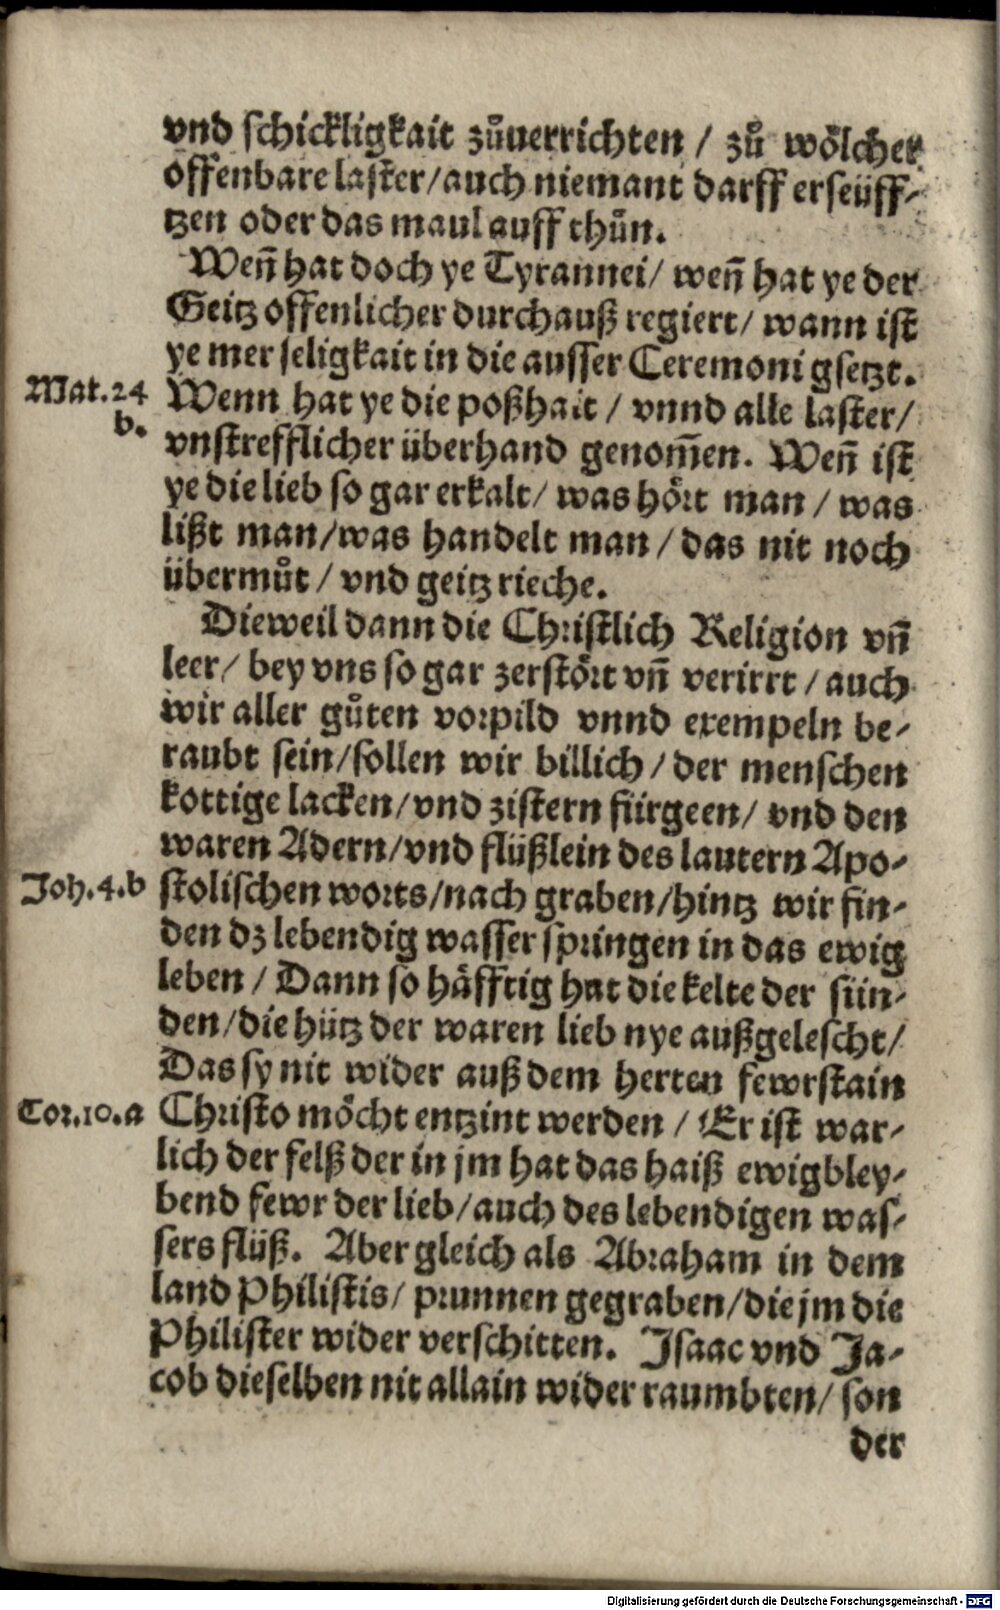 vnd schickligkait zůuerrichten / zů wölcher
offenbare laster/auch niemant darff erseüff-
tzen oder das maul auff thůn.
Weñ hat doch ye Tyrannei/ weñ hat ye der
Geitz offenlicher durchauß regiert/ wann ist
ye mer seligkait in die ausser Ceremoni gsetzt.
Mat.24 Wenn hat ye die poßhait / vnnd alle laster/
b. vnstrefflicher überhand genom̃en. Weñ ist
ye die lieb so gar erkalt/ was hört man / was
lißt man/was handelt man / das nit noch
übermůt / vnd geitz rieche.
Dieweil dann die Christlich Religion vñ
leer/ bey vns so gar zerstört vñ verirrt / auch
wir aller gůten vorpild vnnd exempeln be-
raubt sein/sollen wir billich / der menschen
kottige lacken/vnd zistern fürgeen/ vnd den
waren Adern/vnd flüßlein des lautern Apo-
Joh.4.b stolischen worts/nach graben/hintz wir fin-
den dz lebendig wasser springen in das ewig
leben / Dann so häfftig hat die kelte der sün-
den/die hütz der waren lieb nye außgelescht/
Das sy nit wider auß dem herten fewrstain
Cor.10.a Christo möcht entzint werden / Er ist war-
lich der felß der in jm hat das haiß ewigbley-
bend fewr der lieb/auch des lebendigen was-
sers flüß. Aber gleich als Abraham in dem
land Philistis/ prunnen gegraben/die jm die
Philister wider verschitten. Isaac vnd Ja-
cob dieselben nit allain wider raumbten/ son
der
Digitalisierung gefördert durch die Deutsche Forschungsgemeinschaft - DFG